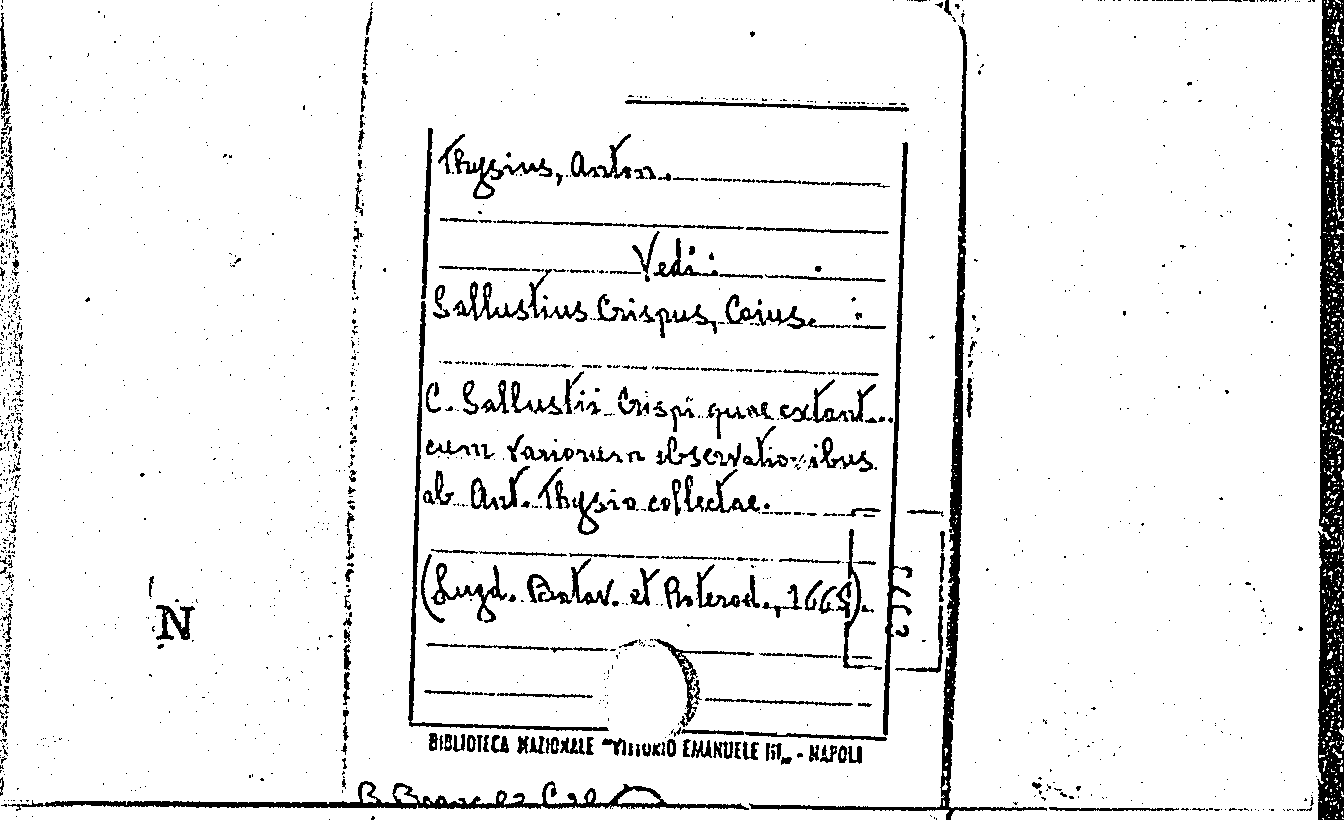 Thysius, Anton.
Vedi:
Sallustius Crispus, Caius.
C. Sallustii Crispi quae extant..
cum variorum observationibus
ab Ant. Thysio collectae.
(Lugd. Batav. et Roterod., 1665).
N
BIBLIOTECA NAZIONALE "VITTORIO EMANUELE III„ - NAPOLI